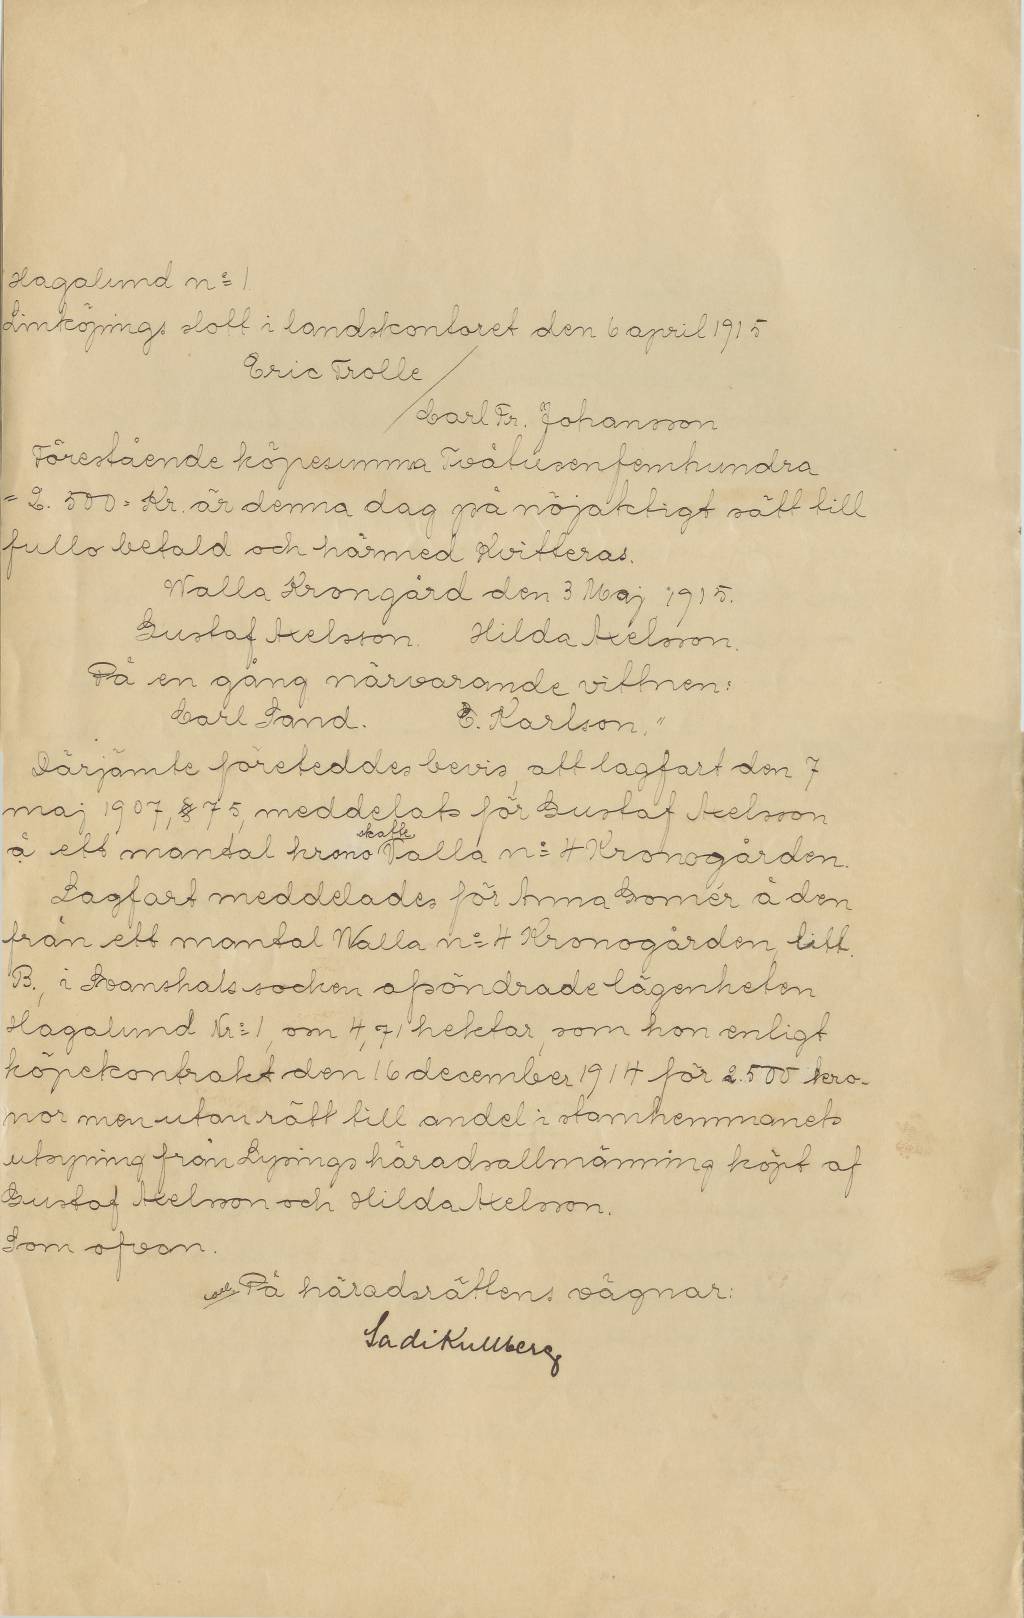 Hagalund n:o 1
Linköpings slott i landskontoret den 6 april 1915
Eric Trolle
/ Carl Fr. Johansson
Förestående köpesumma Tvåtusenfemhundra
= 2.500 = Kr. är denna dag på nöjaktigt sätt till
fullo betald och härmed kvitteras.
Walla Krongård den 3 Maj 1915.
Gustaf Axelsson. Hilda Axelsson.
På en gång närvarande vittnen:
Carl Sand. E. Karlson."
Därjämte företeddes bevis, att lagfart den 7
maj 1907, § 75, meddelats för Gustaf Axelsson
å ett mantal krono skatte Valla n:o 4 Kronogården.
Lagfart meddelades för Anna Gomér å den
från ett mantal Walla n:o 4 Kronogården, litt.
B., i Svanshals socken afsöndrade lägenheten
Hagalund Nr: 1, om 4,71 hektar, som hon enligt
köpekontrakt den 16 december 1914 för 2.500 kro-
nor men utan rätt till andel i stamhemmanets
utsyning från Lysings häradsallmänning köpt af
Gustaf Axelsson och Hilda Axelsson.
Som ofvan.
På häradsrättens vägnar:
Sadi Kullberg